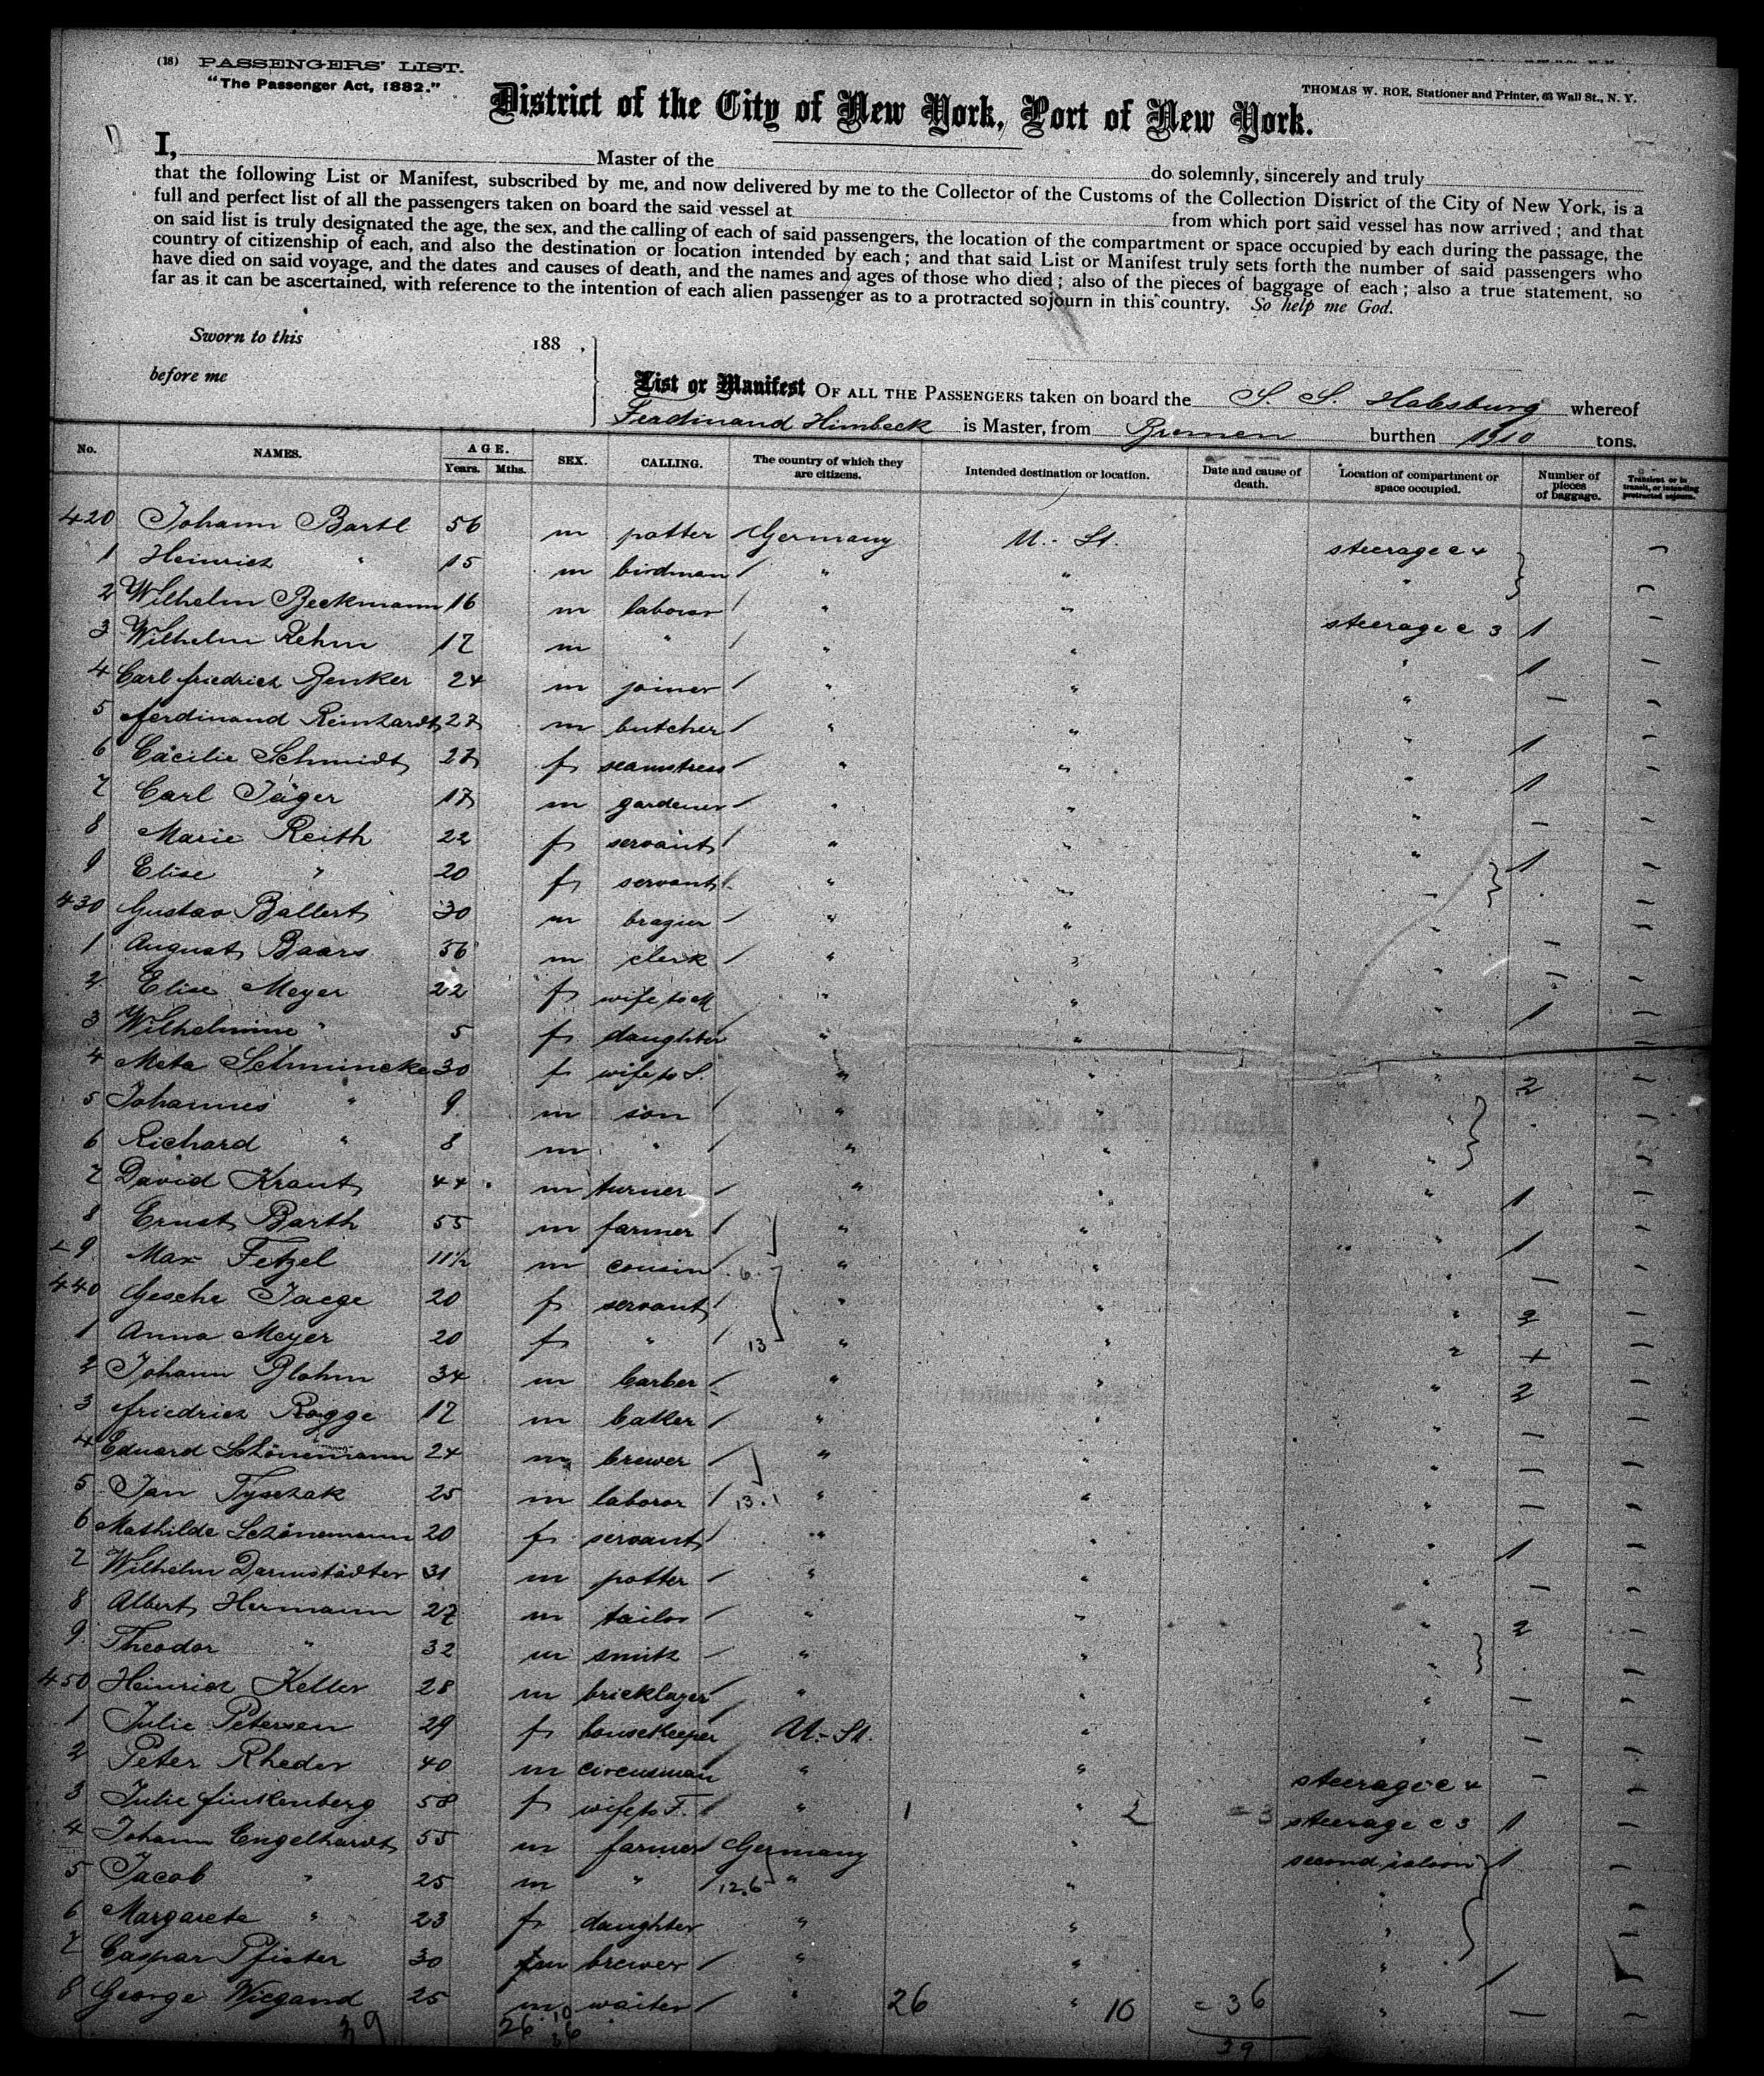 (18) PASSENGERS' LIST.
"The Passenger Act, 1882."
THOMAS W. ROE, Stationer and Printer, 63 Wall St., N. Y.
District of the City of New York, Port of New York.
I, Master of the do solemnly, sincerely and truly
that the following List or Manifest, subscribed by me, and now delivered by me to the Collector of the Customs of the Collection District of the City of New York, is a
full and perfect list of all the passengers taken on board the said vessel at from which port said vessel has now arrived; and that
on said list is truly designated the age, the sex, and the calling of each of said passengers, the location of the compartment or space occupied by each during the passage, the
country of citizenship of each, and also the destination or location intended by each; and that said List or Manifest truly sets forth the number of said passengers who
have died on said voyage, and the dates and causes of death, and the names and ages of those who died; also of the pieces of baggage of each; also a true statement, so
far as it can be ascertained, with reference to the intention of each alien passenger as to a protracted sojourn in this country. So help me God.
Sworn to this 188 .
before me
List or Manifest OF ALL THE PASSENGERS taken on board the S. S. Habsburg whereof
Ferdinand Himbeck is Master, from Bremen burthen 1910 tons.
No. NAMES. AGE. Years. Mths. SEX. CALLING. The country of which they are citizens. Intended destination or location. Date and cause of death. Location of compartment or space occupied. Number of pieces of baggage. Transient or in transit, or intending protracted sojourn.
420 Johann Bartl 56 m potter Germany U.-St. steerage c 4 —
1 Heinrich " 15 m birdman " " " —
2 Wilhelm Beckmann 16 m laborer " " steerage c 3 1 —
3 Wilhelm Rehm 17 m " " " " 1 —
4 Carl Friedrich Renker 24 m joiner " " " — —
5 Ferdinand Reinhardt 27 m butcher " " " 1 —
6 Cäcilie Schmidt 27 f seamstress " " " 1 —
7 Carl Jäger 17 m gardener " " " — —
8 Marie Reith 22 f servant " " " 1 —
9 Elise " 20 f servant " " " —
430 Gustav Ballert 30 m brazier " " " — —
1 August Baars 56 m clerk " " " — —
2 Elise Meyer 22 f wife to M " " " 1 —
3 Wilhelmine " 5 f daughter " " " —
4 Meta Schmincke 30 f wife to S. " " " 2 —
5 Johannes " 9 m son " " " —
6 Richard " 8 m " " " " —
7 David Kraut 44 m turner " " " 1 —
8 Ernst Barth 55 m farmer " " " 1 —
9 Max Fetzel 11½ m cousin 6 " " " — —
440 Gesche Jaege 20 f servant " " " 2 —
1 Anna Meyer 20 f " 13 " " " + —
2 Johann Blohm 34 m barber " " " 2 —
3 Friedrich Rogge 17 m baker " " " — —
4 Eduard Schönemann 24 m brewer " " " — —
5 Jan Tyschak 25 m laboror 13.1 " " " — —
6 Mathilde Schönemann 20 f servant " " " 1 —
7 Wilhelm Darmstädter 31 m potter " " " — —
8 Albert Hermann 27 m tailor " " " 2 —
9 Theodor " 32 m smith " " " —
450 Heinrich Keller 28 m bricklayer " " " — —
1 Julie Petersen 29 f housekeeper U.-St. " " — —
2 Peter Rheder 40 m circusman " " steerage c 4 — —
3 Julie Finkenberg 58 f wife to F. " 1 " 2 = 3 steerage c 3 1 —
4 Johann Engelhardt 55 m farmer Germany " second saloon 1 —
5 Jacob " 25 m " 12.6 " " " —
6 Margarete " 23 f daughter " " " —
7 Caspar Pfister 30 m brewer " " " 1
8 George Wiegand 25 m waiter " 26 " 10 = 36 " — —
39 26 10 36 39